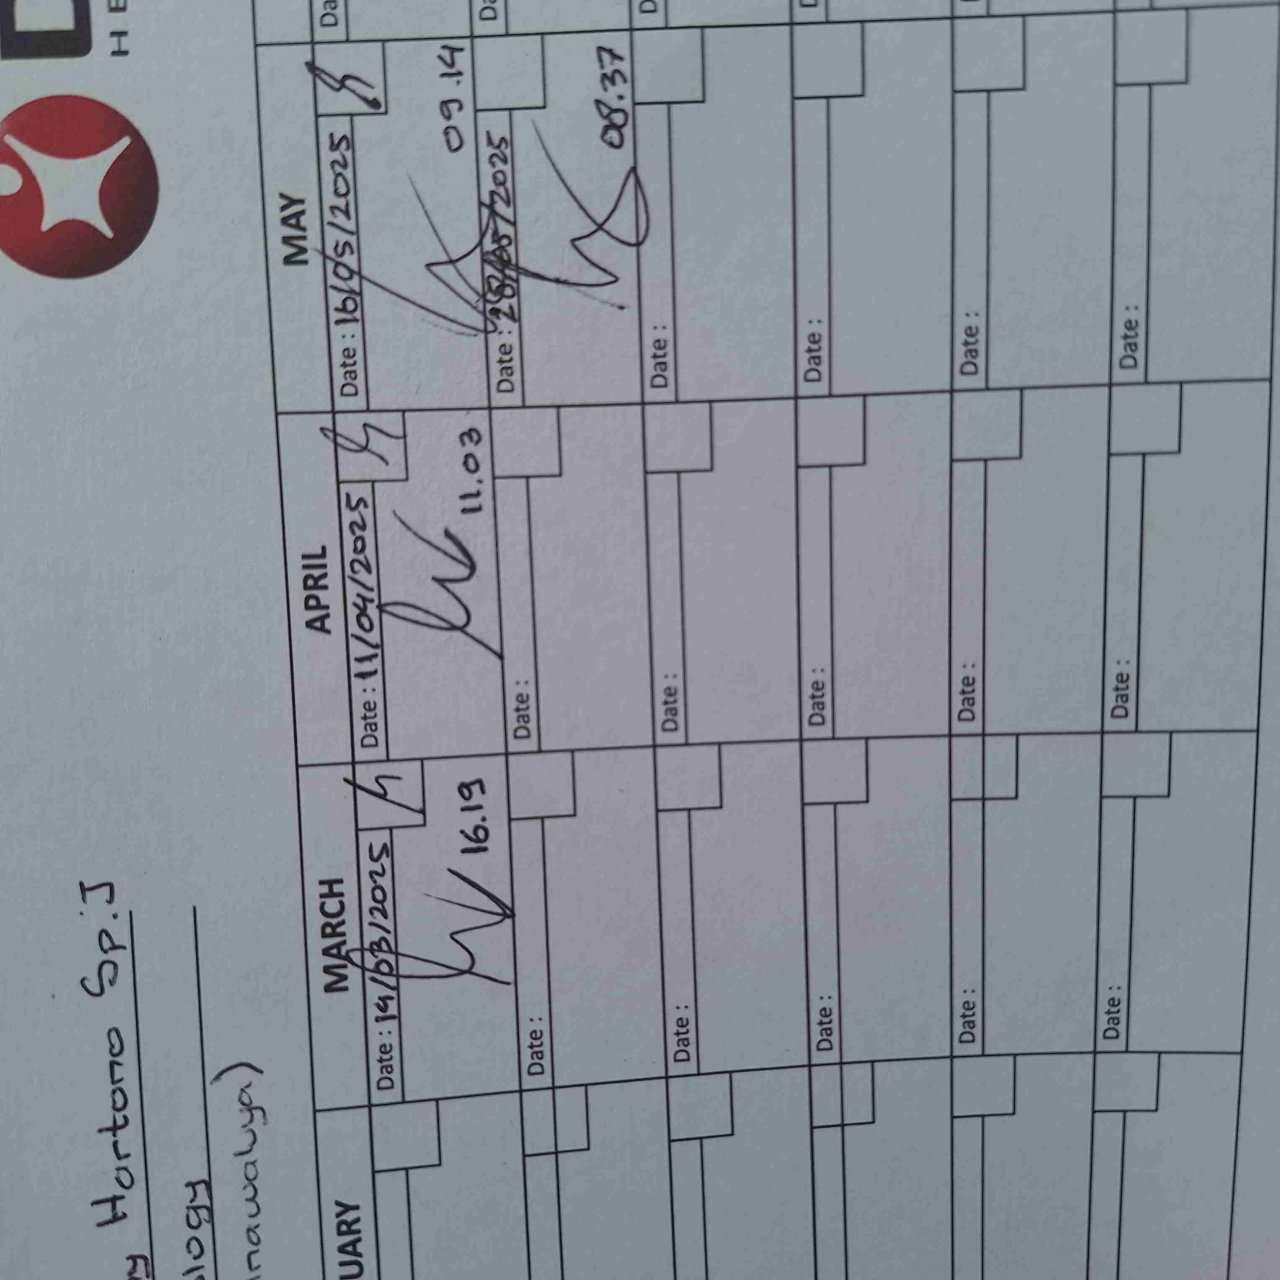 y Hartono Sp.J
logy
nawaluya)
HE
UARY MARCH APRIL MAY
Date : 14/03/2025 Date : 11/04/2025 Date : 16/05/2025 Da
16.19 11.03 09.14
Date : Date : Date : 28/05/2025 Da
08.37
Date : Date : Date : D
Date : Date : Date : D
Date : Date : Date :
Date : Date : Date :